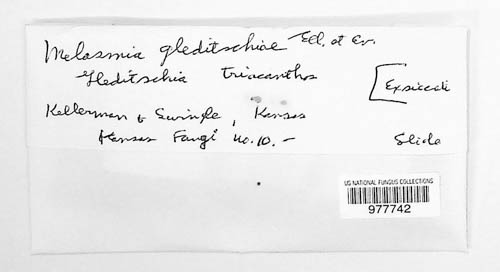 Melasmia gleditschiae Ell. et Ev.
Gleditschia triacanthos
[Exsiccati
Kellerman & Swingle, Kansas
Kansas Fungi no. 10. –
Slide
US NATIONAL FUNGUS COLLECTIONS
977742